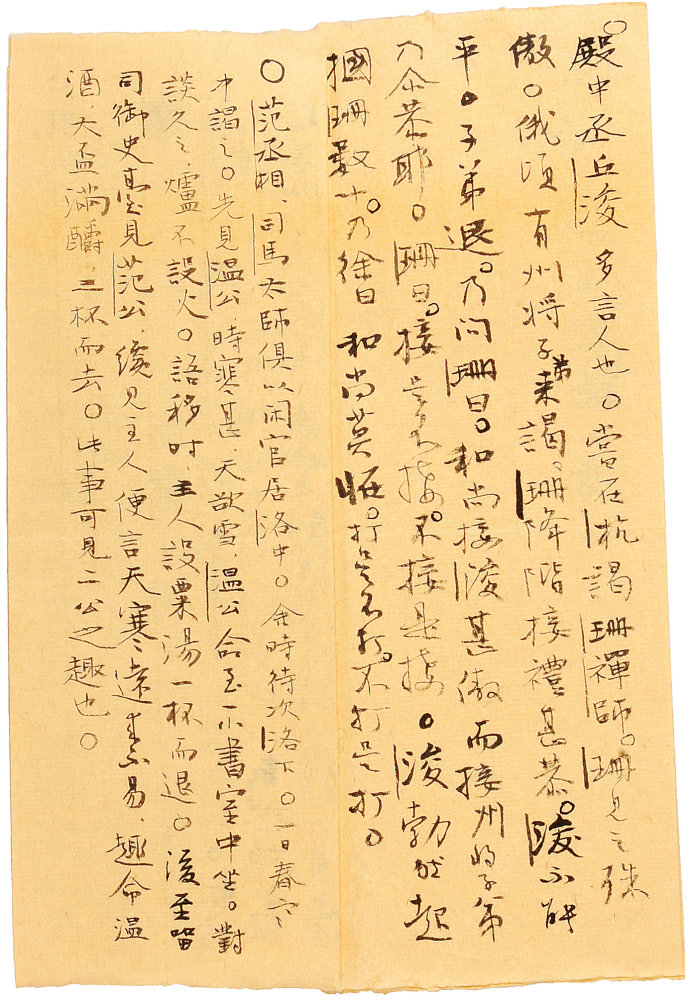 殿中丞丘浚多言人也。嘗在杭謁珊禪師。珊見之殊
傲。俄頃有州將子弟來謁。珊降階接禮甚恭。浚不能
平。子弟退。乃問珊曰。和尚接浚甚傲而接州將子弟
乃尒恭耶。珊曰。接是不接。不接是接。浚勃然起
摑珊數十。乃徐曰和尚莫恠。打是不打。不打是打。
〇范丞相、司馬太師俱以閑官居洛中。余時待次洛下。一日春寒
中謁之。先見温公、時寒甚、天欲雪、温公命至一小書室中坐。對
談久之、爐不設火。語移时、主人設栗湯一杯而退。後至畱
司御史臺見范公、纔見主人便言天寒遠來不易、趣命温
酒、大盃滿酹、三杯而去。此事可見二公之趣也。